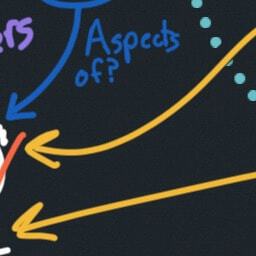 ers
Aspects
of?